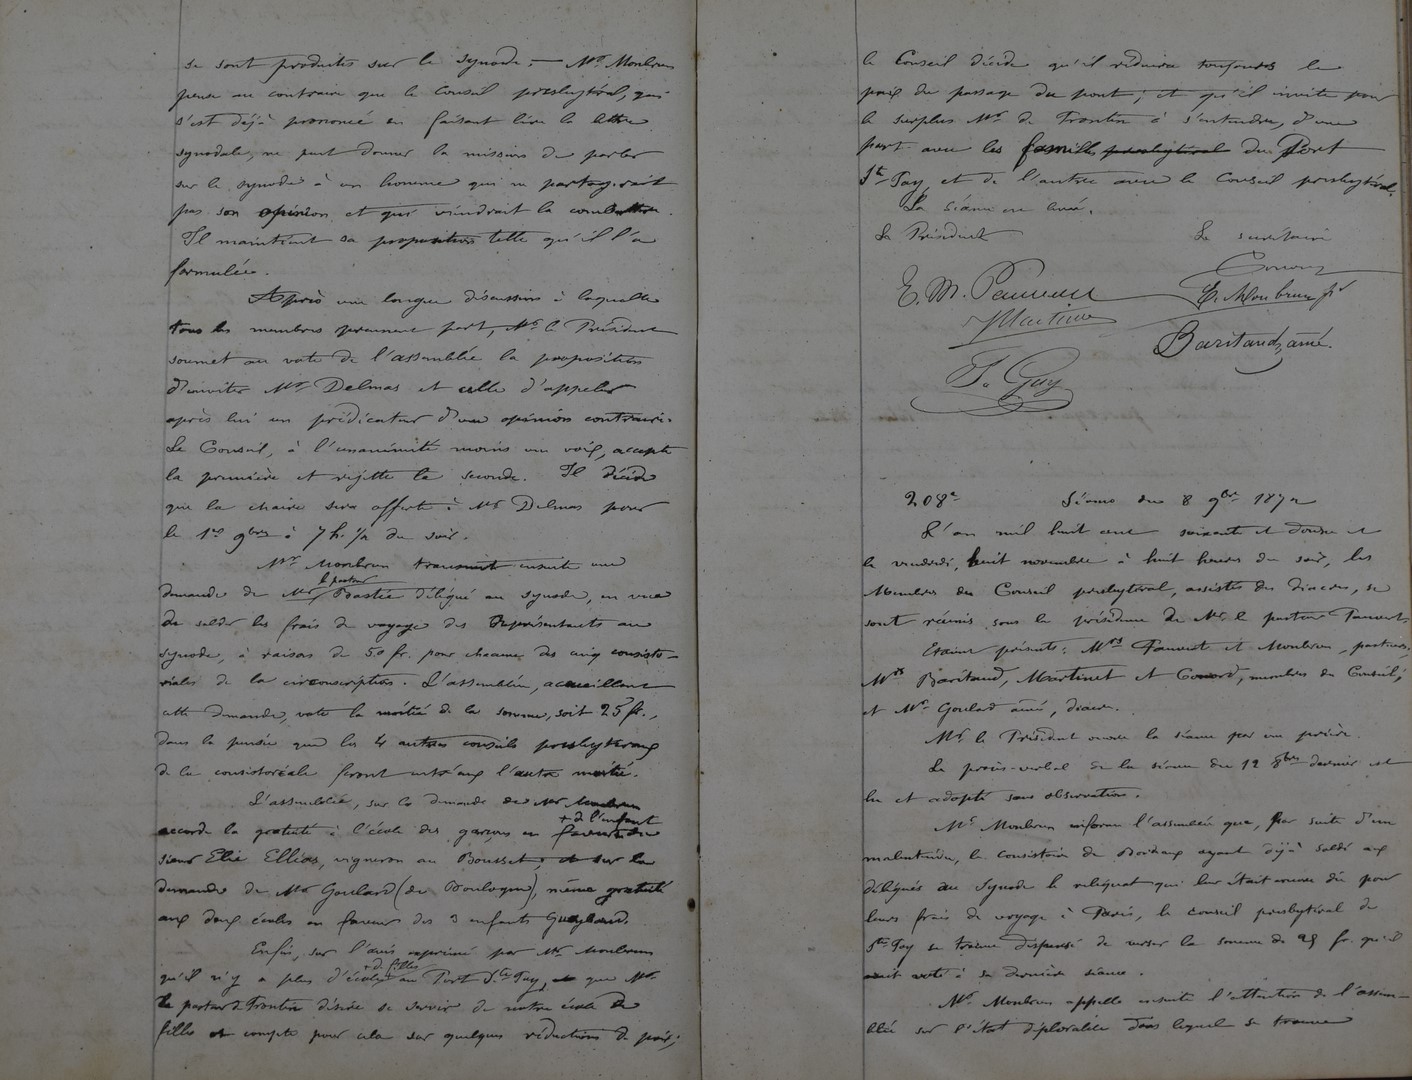 se sont produites sur le synode. — Mr Monbrun
pense au contraire que le Conseil presbytéral, qui
s'est déjà prononcé en faisant lire la lettre
synodale, ne peut donner la mission de parler
sur le synode à un homme qui ne partagerait
pas son opinion et qui viendrait la combattre.
Il maintient sa proposition telle qu'il l'a
formulée.
Après une longue discussion à laquelle
tous les membres prennent part, Mr le Président
soumet au vote de l'assemblée la proposition
d'inviter Mr Delmas et celle d'appeler
après lui un prédicateur d'une opinion contraire.
Le Conseil, à l'unanimité moins une voix, accepte
la première et rejette la seconde. Il décide
que la chaire sera offerte à Mr Delmas pour
le 1er 9bre à 7 h. ½ du soir.
Mr Monbrun transmet ensuite une
demande de Mr le pasteur Bastie délégué au synode, en vue
de solder les frais de voyage des Représentants au
synode, à raison de 50 fr. pour chacune des cinq consisto-
riales de la circonscription. L'assemblée, accueillant
cette demande, vote la moitié de la somme, soit 25 fr.,
dans la pensée que les 4 autres conseils presbytéraux
de la consistoriale feront entr'eux l'autre moitié.
L'assemblée, sur la demande de Mr Monbrun
accorde la gratuité à l'école des garçons en faveur + de l'enfant du
sieur Elie Ellias, vigneron au Bousset; et sur la
demande de Mr Goulard (de Boulogne), même gratuité
aux deux écoles en faveur des 3 enfants
Enfin, sur l'avis exprimé par Mr Monbrun
qu'il n'y a plus d'école + de filles au Port Ste Foy, et que Mr
le pasteur de Frontin désire se servir de notre école de
filles et compte pour cela sur quelques réductions de prix;
le Conseil décide qu'il réduira toujours le
prix du passage du pont; et qu'il invite pour
le surplus Mr de Frontin à s'entendre, d'une
part avec les familles presbytéral du Port
Ste Foy, et de l'autre avec le Conseil presbytéral.
La séance est levée.
Le Président Le secrétaire
E. M. Pauvert
E. Monbrun pr
Martinet
Baritaud, ainé.
T. Guy
208e Séance du 8 9bre 1872
L'an mil huit cent soixante et douze et
le vendredi, huit novembre à huit heures du soir, les
Membres du Conseil presbytéral, assistés des diacres, se
sont réunis sous la présidence de Mr le pasteur Pauvert.
Etaient présents: Mrs Pauvert et Monbrun, pasteurs,
Mrs Baritaud, Martinet et Conord, membres du Conseil;
et Mr Goulard ainé, diacre.
Mr le Président ouvre la séance par une prière.
Le procès-verbal de la séance du 12 8bre dernier est
lu et adopté sans observation.
Mr Monbrun informe l'assemblée que, par suite d'un
malentendu, le consistoire de Bordeaux ayant déjà soldé aux
délégués au Synode le reliquat qui leur était encore dû pour
leurs frais de voyage à Paris, le conseil presbytéral de
Ste Foy se trouve dispensé de verser la somme de 25 fr. qu'il
avait voté à sa dernière séance.
Mr Monbrun appelle ensuite l'attention de l'assem-
blée sur l'état déplorable dans lequel se trouve